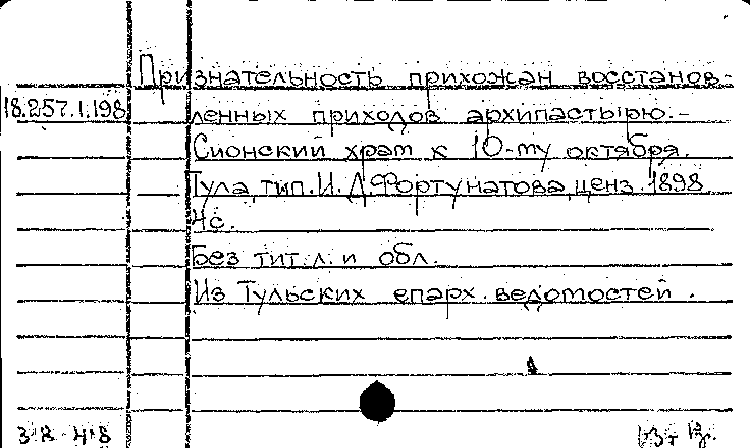 Признательность прихожан восстанов-
18.257.1.198 ленных приходов архипастырю.-
Сионский храм к 10-му октября.
Тула, тип. И. Д. Фортунатова, ценз. 1898
4с.
Без тит. л. и обл.
Из Тульских епарх. ведомостей.